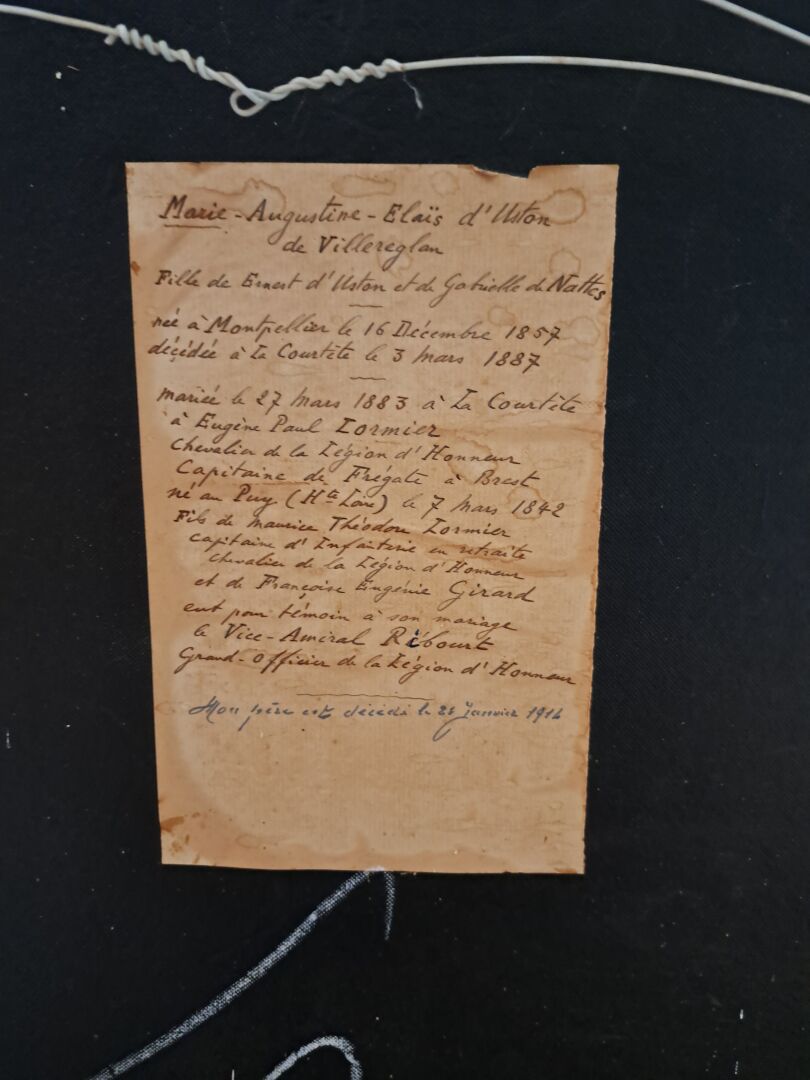 Marie - Augustine - Elaïs d'Uston
de Villereglan
Fille de Ernest d'Uston et de Gabrielle de Nattes
née à Montpellier le 16 Décembre 1857
décédée à La Courtète le 3 Mars 1887
mariée le 27 Mars 1883 à La Courtète
à Eugène Paul Lormier
Chevalier de la Légion d'Honneur
Capitaine de Frégate à Brest
né au Puy (Hte Loire) le 7 Mars 1842
Fils de Maurice Théodore Lormier
capitaine d'Infanterie en retraite
chevalier de la Légion d'Honneur
et de Françoise Eugénie Girard
eut pour témoin à son mariage
le Vice-Amiral Ribourt
Grand-Officier de la Légion d'Honneur
Mon père est décédé le Janvier